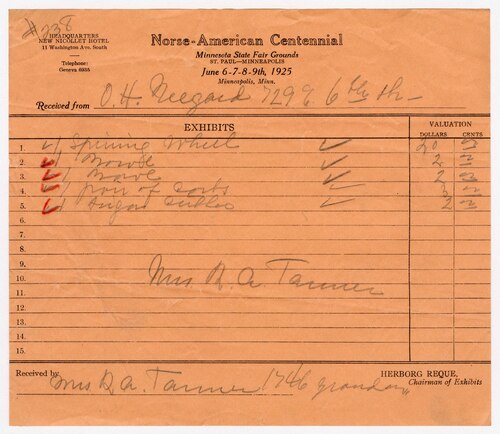 #238
HEADQUARTERS
NEW NICOLLET HOTEL
11 Washington Ave. South
Telephone:
Geneva 6935
Norse-American Centennial
Minnesota State Fair Grounds
ST. PAUL—MINNEAPOLIS
June 6-7-8-9th, 1925
Minneapolis, Minn.
Received from O. H. 729 6th
EXHIBITS
VALUATION
DOLLARS CENTS
1. Spining Wheel 20
2. 2
3. 2
4. pair of
5. Sugar 2
6.
7.
8.
9.
10. Mrs R. A. Tanner
11.
12.
13.
14.
15.
Received by Mrs R. A. Tanner 1746
HERBORG REQUE,
Chairman of Exhibits